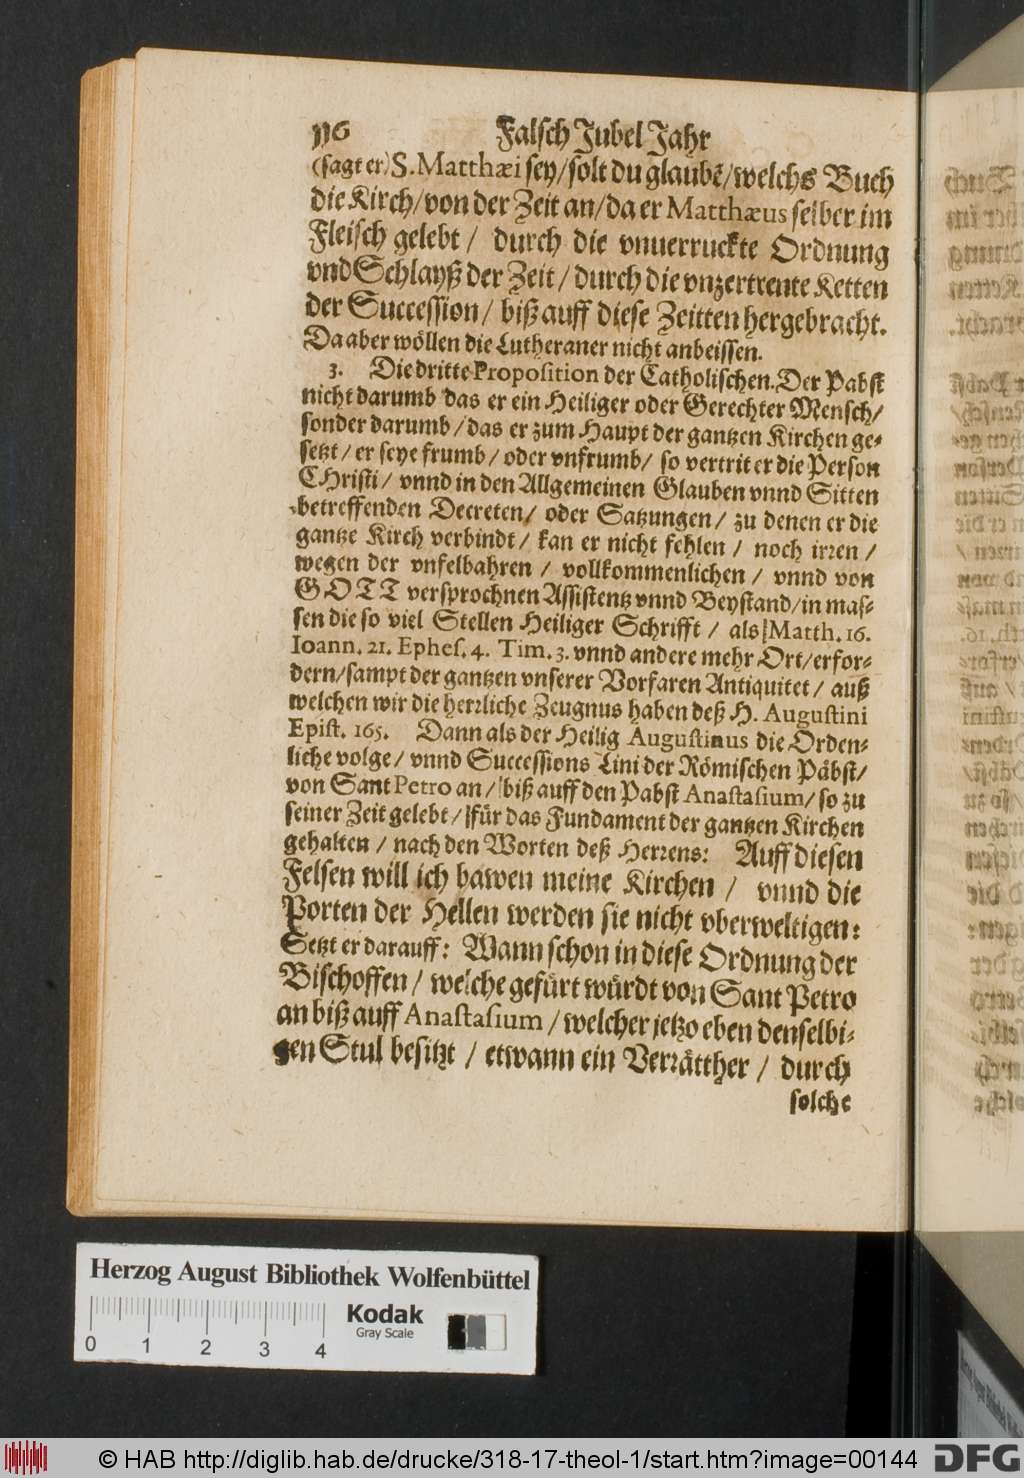 116 Falsch Jubel Jahr
(sagt er) S. Matthæi sey/solt du glaubẽ/welchs Buch
die Kirch/von der Zeit an/da er Matthæus selber im
Fleisch gelebt / durch die vnuerruckte Ordnung
vnd Schlayß der Zeit / durch die vnzertrente Ketten
der Succession / biß auff diese Zeitten hergebracht.
Da aber wöllen die Lutheraner nicht anbeissen.
3. Die dritte Proposition der Catholischen. Der Pabst
nicht darumb das er ein Heiliger oder Gerechter Mensch/
sonder darumb / das er zum Haupt der gantzen Kirchen ge-
setzt / er seye frumb / oder vnfrumb / so vertrit er die Person
CHristi / vnnd in den Allgemeinen Glauben vnnd Sitten
betreffenden Decreten / oder Satzungen / zu denen er die
gantze Kirch verbindt / kan er nicht fehlen / noch irren /
wegen der vnfelbahren / vollkommenlichen / vnnd von
GOTT versprochnen Assistentz vnnd Beystand/in mas-
sen die so viel Stellen Heiliger Schrifft / als Matth. 16.
Ioann. 21. Ephes. 4. Tim. 3. vnnd andere mehr Ort/erfor-
dern/sampt der gantzen vnserer Vorfaren Antiquitet / auß
welchen wir die herrliche Zeugnus haben deß H. Augustini
Epist. 165. Dann als der Heilig Augustinus die Orden-
liche volge / vnnd Successions Lini der Römischen Päbst/
von Sant Petro an / biß auff den Pabst Anastasium / so zu
seiner Zeit gelebt / für das Fundament der gantzen Kirchen
gehalten / nach den Worten deß Herrens: Auff diesen
Felsen will ich bawen meine Kirchen / vnnd die
Porten der Hellen werden sie nicht vberweltigen:
Setzt er darauff: Wann schon in diese Ordnung der
Bischoffen / welche gefürt würdt von Sant Petro
an biß auff Anastasium / welcher jetzo eben denselbi-
gen Stul besitzt / etwann ein Verrätther / durch
solche
Herzog August Bibliothek Wolfenbüttel
Kodak
Gray Scale
0 1 2 3 4
© HAB http://diglib.hab.de/drucke/318-17-theol-1/start.htm?image=00144
DFG